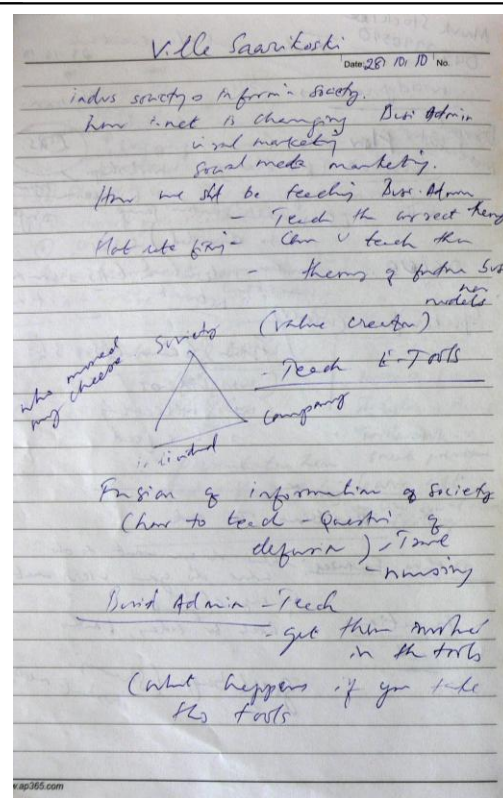 Ville Saarikoski
Date: 28/ 10/ 10 No.
indus society o Inform'n society.
how i.net is changing Busi Admin
viral marketing
Social media marketing.
How we shd be teaching Busi. Admin
- Teach the correct
Flat rate - Can U teach the
- theory of future Busi
models
Society (value creation)
who moved
my cheese
- Teach E-Tools
Company
Fusion of information of society
(how to teach - Questn of
defusion) - Travel
- nursing
Admin - Teach
- get them
in the tools
(what happens if you take
the tools
ap365.com